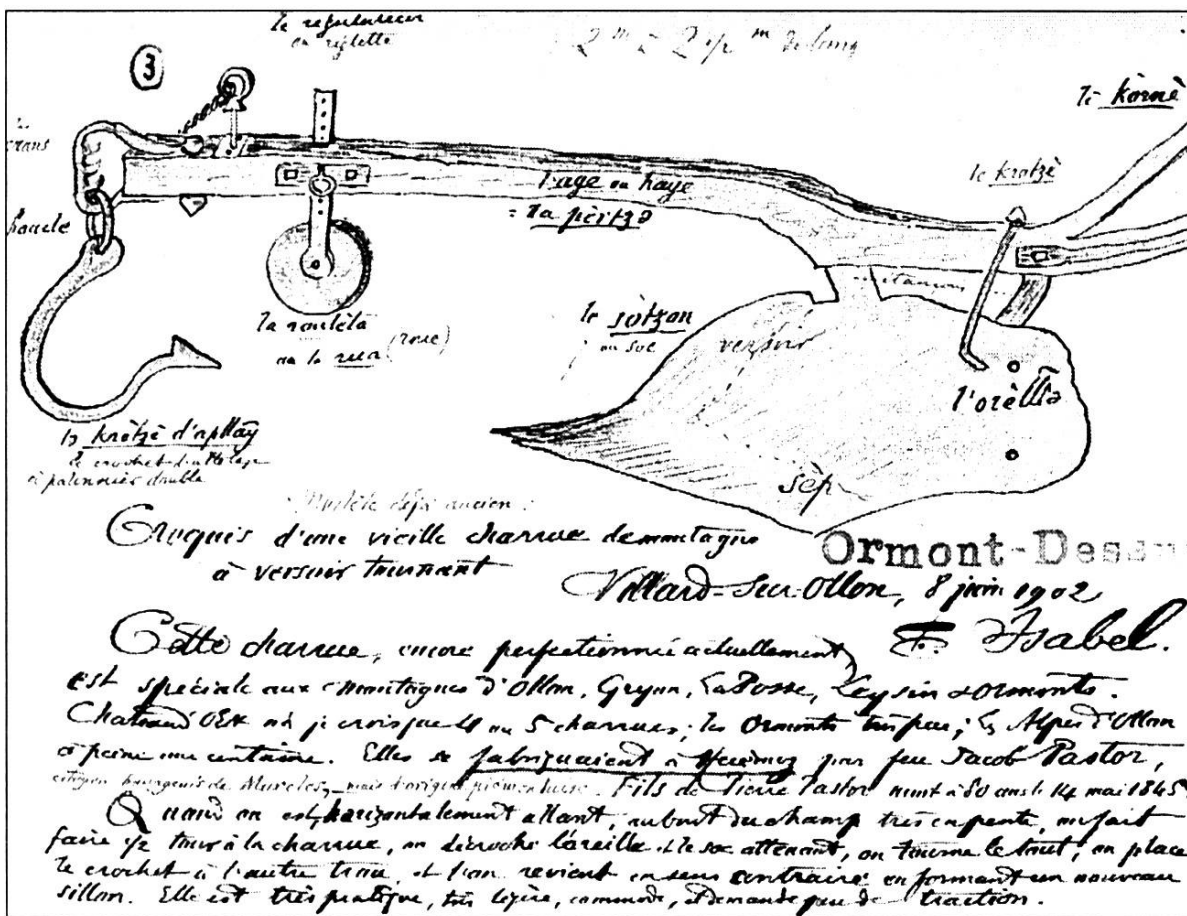 le régulateur
ou réglette
2 m à 2 1/2 m de long
3
le kornè
crans
le krotzè
l'age ou haye
= la pèrtzə
boucle
étançon
la roulèta
ou la rua (roue)
le sòtzon
ou soc
versoir
l'orèllə
lə krotzè d'apllay
le crochet d'attelage
à palonnier double
sèp
Modèle déjà ancien.
Croquis d'une vieille charrue de montagne
à versoir tournant
Ormont-Dessus
Villard-sur-Ollon, 8 juin 1902
F. Isabel.
Cette charrue, encore perfectionnée actuellement,
est spéciale aux montagnes d'Ollon, Gryon, La Posse, Leysin & Ormonts.
Chateau d'Oex n'a je crois que 4 ou 5 charrues; les Ormonts très peu; les Alpes d'Ollon
à peine une centaine. Elles se fabriquaient à Huémoz par feu Jacob Pastor,
citoyen bourgeois de mais d'origine piémontaise. Fils de Pierre Pastor mort à 80 ans le 14 mai 1845
Quand on est, horizontalement allant, au bout du champ très en pente, on fait
faire 1/2 tour à la charrue, on décroche l'oreille et le soc attenant, on tourne le tout; on place
le crochet à l'autre trou, et l'on revient en sens contraire en formant un nouveau
sillon. Elle est très pratique, très légère, commode, et demande peu de traction.